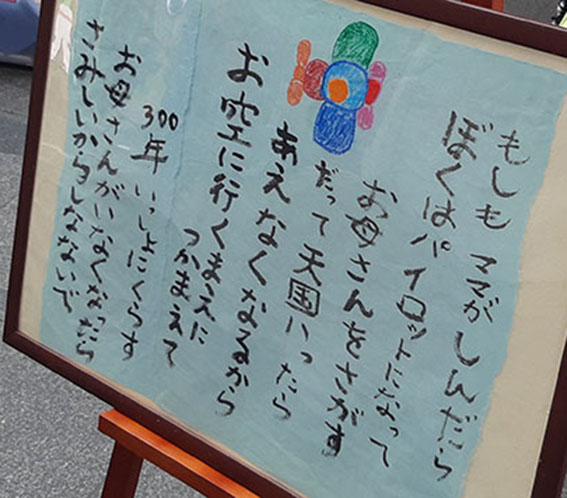 もしも ママが しんだら
ぼくはパイロットになって
お母さんをさがす
だって天国いったら
あえなくなるから
お空に行くまえに
つかまえて
300年 いっしょにくらす
お母さんがいなくなったら
さみしいからしなないで